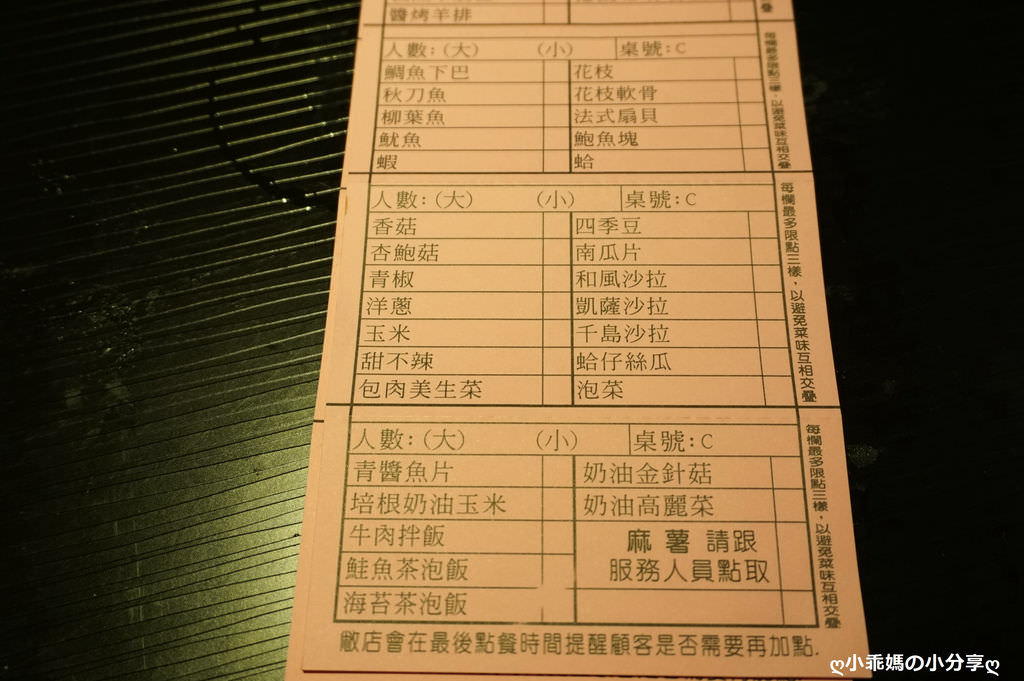 醬烤羊排
人數:(大) (小) 桌號:C
鯛魚下巴 花枝
秋刀魚 花枝軟骨
柳葉魚 法式扇貝
魷魚 鮑魚塊
蝦 蛤
每欄最多限點三樣,以避免菜味互相交疊
人數:(大) (小) 桌號:C
香菇 四季豆
杏鮑菇 南瓜片
青椒 和風沙拉
洋蔥 凱薩沙拉
玉米 千島沙拉
甜不辣 蛤仔絲瓜
包肉美生菜 泡菜
每欄最多限點三樣,以避免菜味互相交疊
人數:(大) (小) 桌號:C
青醬魚片 奶油金針菇
培根奶油玉米 奶油高麗菜
牛肉拌飯 麻薯請跟
鮭魚茶泡飯 服務人員點取
海苔茶泡飯
每欄最多限點三樣,以避免菜味互相交疊
敝店會在最後點餐時間提醒顧客是否需要再加點.
ღ小乖媽の小分享ღ